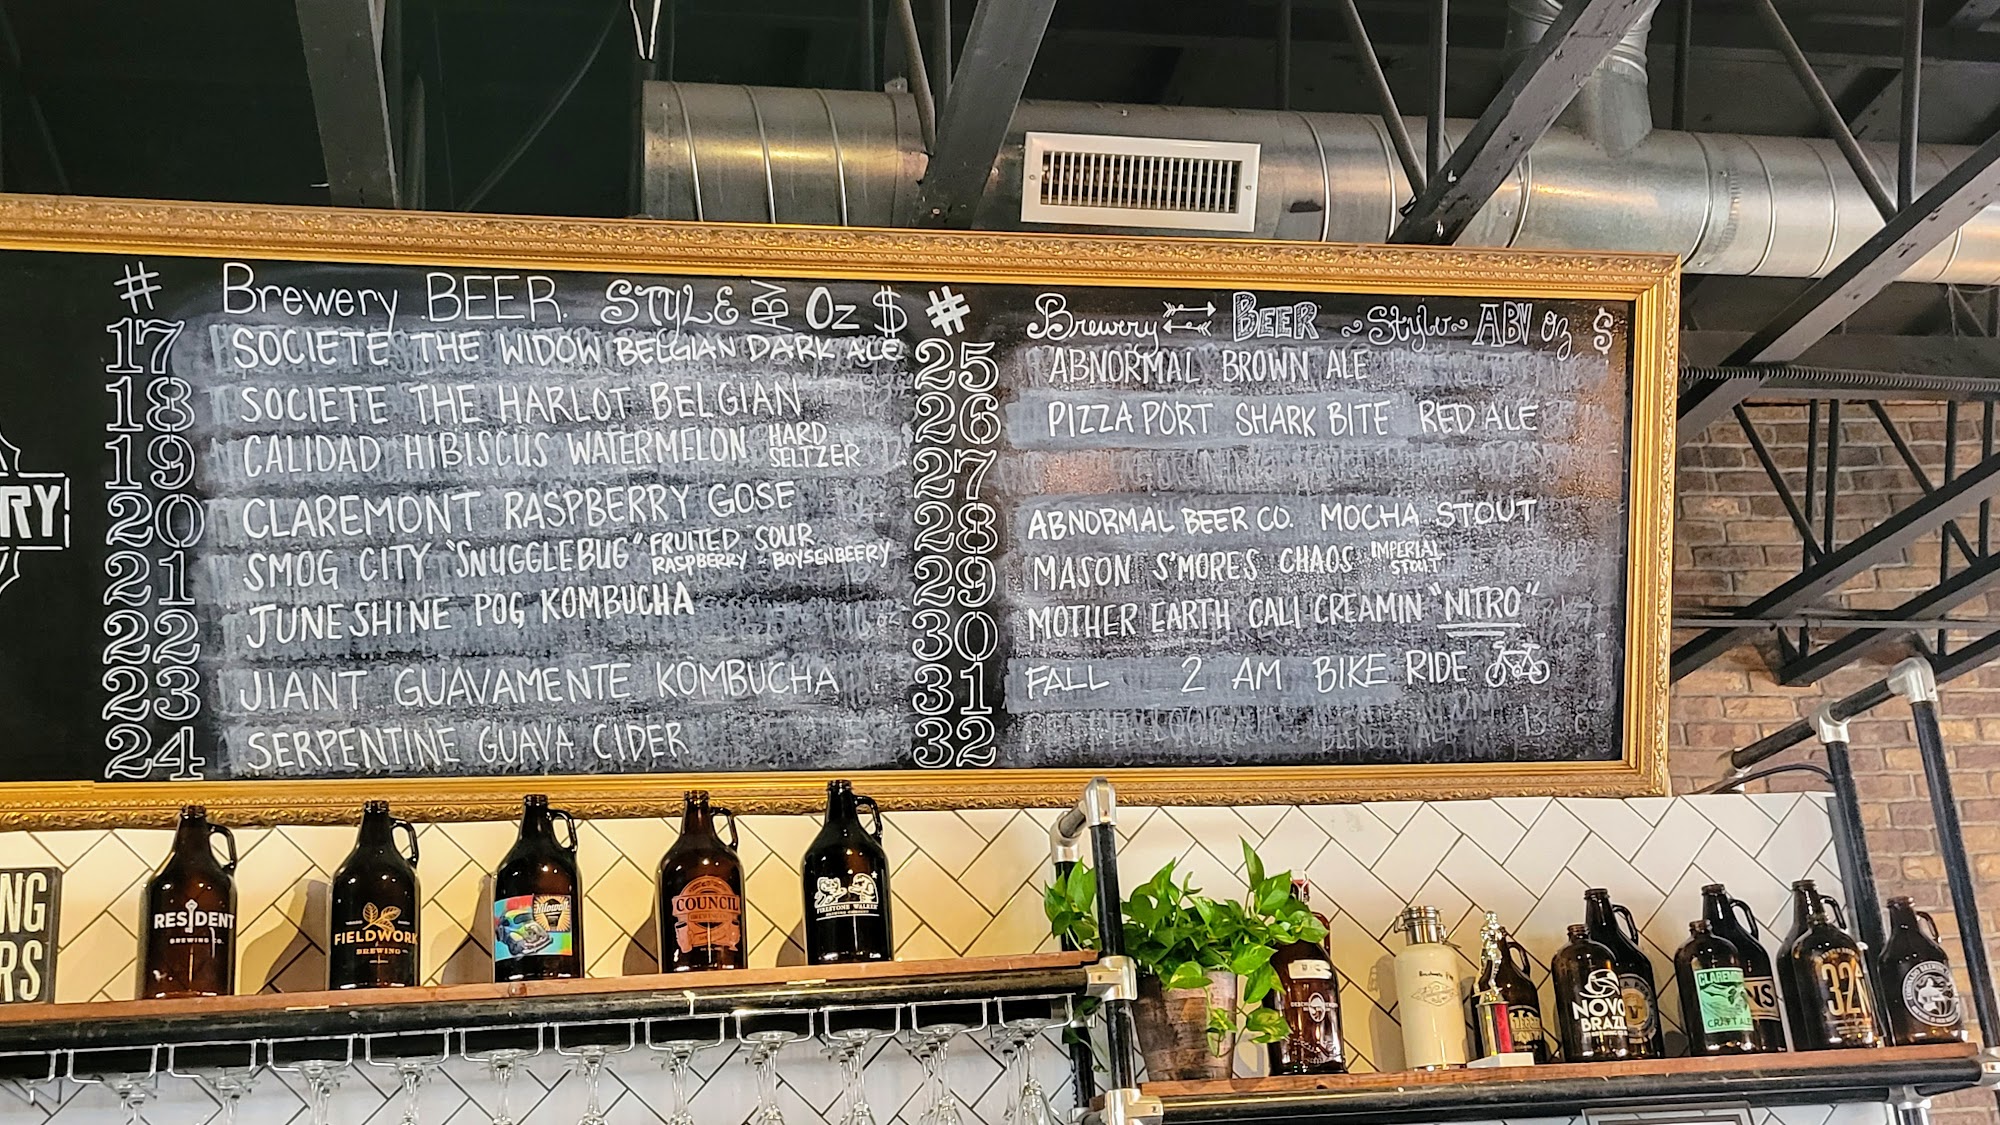 RY
# Brewery BEER STYLE ABV Oz $
17 SOCIETE THE WIDOW BELGIAN DARK ALE
18 SOCIETE THE HARLOT BELGIAN
19 CALIDAD HIBISCUS WATERMELON HARD SELTZER
20 CLAREMONT RASPBERRY GOSE
21 SMOG CITY "SNUGGLEBUG" FRUITED SOUR
RASPBERRY - BOYSENBEERY
22 JUNESHINE POG KOMBUCHA
23 JIANT GUAVAMENTE KOMBUCHA
24 SERPENTINE GUAVA CIDER
# Brewery BEER ~Style~ ABV oz $
25 ABNORMAL BROWN ALE
26 PIZZA PORT SHARK BITE RED ALE
27
28 ABNORMAL BEER CO. MOCHA STOUT
29 MASON S'MORES CHAOS IMPERIAL STOUT
30 MOTHER EARTH CALI CREAMIN "NITRO"
31 FALL 2 AM BIKE RIDE
32
NG
RS
RESIDENT
BREWING CO.
FIELDWORK
BREWING
Kilowatt
COUNCIL
BREWING CO
FIRESTONE WALKER
BREWING COMPANY
NOVO
BRAZIL
CLAREMONT
CRAFT ALES
NS
32